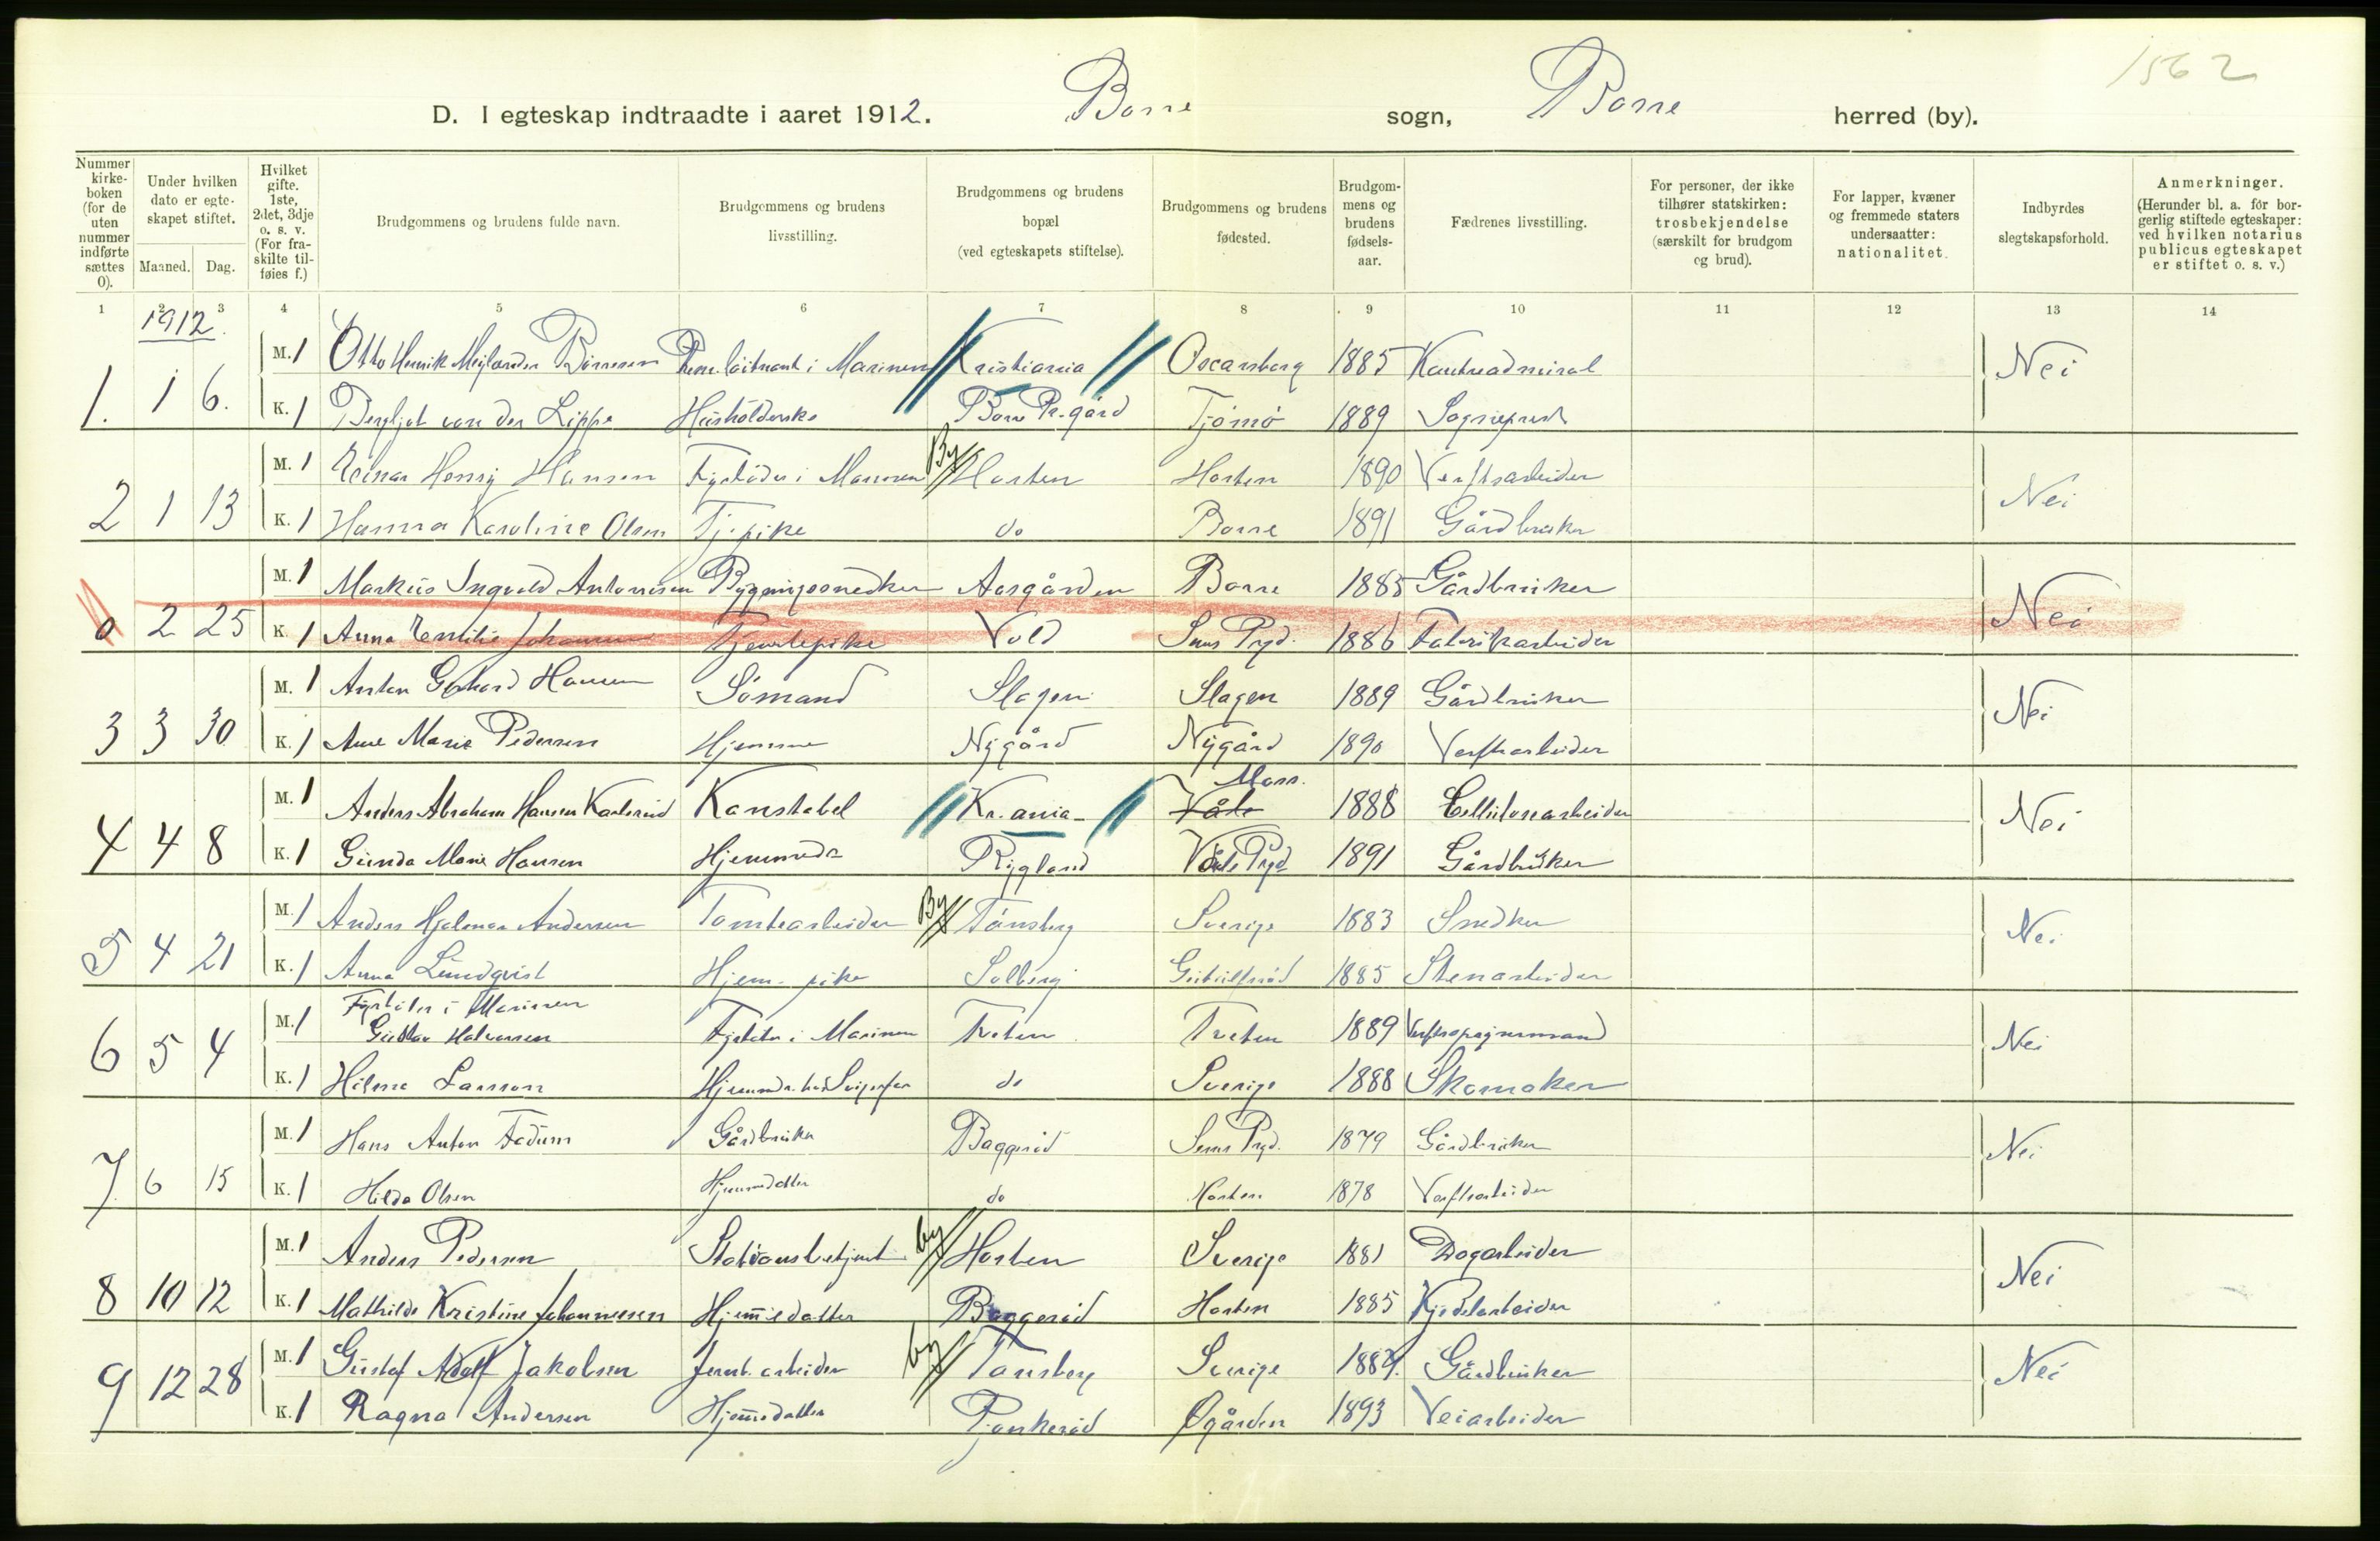 1562
D. I egteskap indtraadte i aaret 1912. Borre sogn, Borre herred (by).
Nummer kirke-boken (for de uten nummer indførte sættes 0).
Under hvilken dato er egte-skapet stiftet.
Maaned. Dag.
Hvilket gifte. 1ste, 2det, 3dje o. s. v. (For fra-skilte til-føies f.)
Brudgommens og brudens fulde navn.
Brudgommens og brudens livsstilling.
Brudgommens og brudens bopæl (ved egteskapets stiftelse).
Brudgommens og brudens fødested.
Brudgom-mens og brudens fødsels-aar.
Fædrenes livsstilling.
For personer, der ikke tilhører statskirken: trosbekjendelse (særskilt for brudgom og brud).
For lapper, kvæner og fremmede staters undersaatter: nationalitet.
Indbyrdes slegtskapsforhold.
Anmerkninger. (Herunder bl. a. for bor-gerlig stiftede egteskaper: ved hvilken notarius publicus egteskapet er stiftet o. s. v.)
1 2 3 4 5 6 7 8 9 10 11 12 13 14
1912.
M. 1 Otto Henrik Børresen Prem. løitnant i Marinen Kristiania Oscarsborg 1885 Kontreadmiral Nei
1. 1 6. K. 1 Bergljot von der Lippe Husholderske Borre Pr.gård Tjømø 1889 Sogneprest
M. 1 Einar Henry Hansen Fyrbøder i Marinen By Horten Horten 1890 Verftsarbeider Nei
2 1 13 K. 1 Hanna Karoline Olsen Tj.pike do Borre 1891 Gårdbruker
M. 1 Markus Ingvald Antonisen Bygningssnedker Aasgården Borre 1885 Gårdbruker Nei
0 2 25 K. 1 Anna Emilie Johansen Tjenestepike Vold Sems Prgd. 1886 Fabrikarbeider
M. 1 Anton Gerhard Hansen Sømand Slagen Slagen 1889 Gårdbruker Nei
3 3 30 K. 1 Ane Marie Pedersen Hjemme Nygård Nygård 1890 Verftsarbeider
Moss.
M. 1 Anders Abraham Hansen Karlsrud Konstabel Kr.ania Våle 1888 Cellulosearbeider Nei
4 4 8 K. 1 Gunda Marie Hansen Hjemmeda Rygland Våle Prgd 1891 Gårdbruker
M. 1 Anders Hjalmar Andersen Tomtearbeider By Tønsberg Sverige 1883 Snedker Nei
5 4 21 K. 1 Anna Lundqvist Hjem. pike Solberg 1885 Stenarbeider
Fyrbøder i Marinen
M. 1 Gustav Halvorsen Fyrbøder i Marinen Treten Treten 1889 Nei
6 5 4 K. 1 Hilma Larsson do Sverige 1888 Skomaker
M. 1 Hans Anton Fadum Gårdbruker Baggerød Sems Prgd. 1879 Gårdbruker Nei
7. 6 15 K. 1 Hilda Olsen Hjemmedatter do Horten 1878 Verftsarbeider
M. 1 Anders Pedersen Stationsbetjent by Horten Sverige 1881 Dagarbeider Nei
8 10 12 K. 1 Mathilde Kristine Johannessen Hjemmedatter Baggerød Horten 1885 Kjedelarbeider
M. 1 Gustaf Adolf Jakobsen Jernb. arbeider by Tønsberg Sverige 1887. Gårdbruker Nei
9 12 28 K. 1 Ragna Andersen Hjemmedatter Pjonkerød Øgården 1893 Veiarbeider